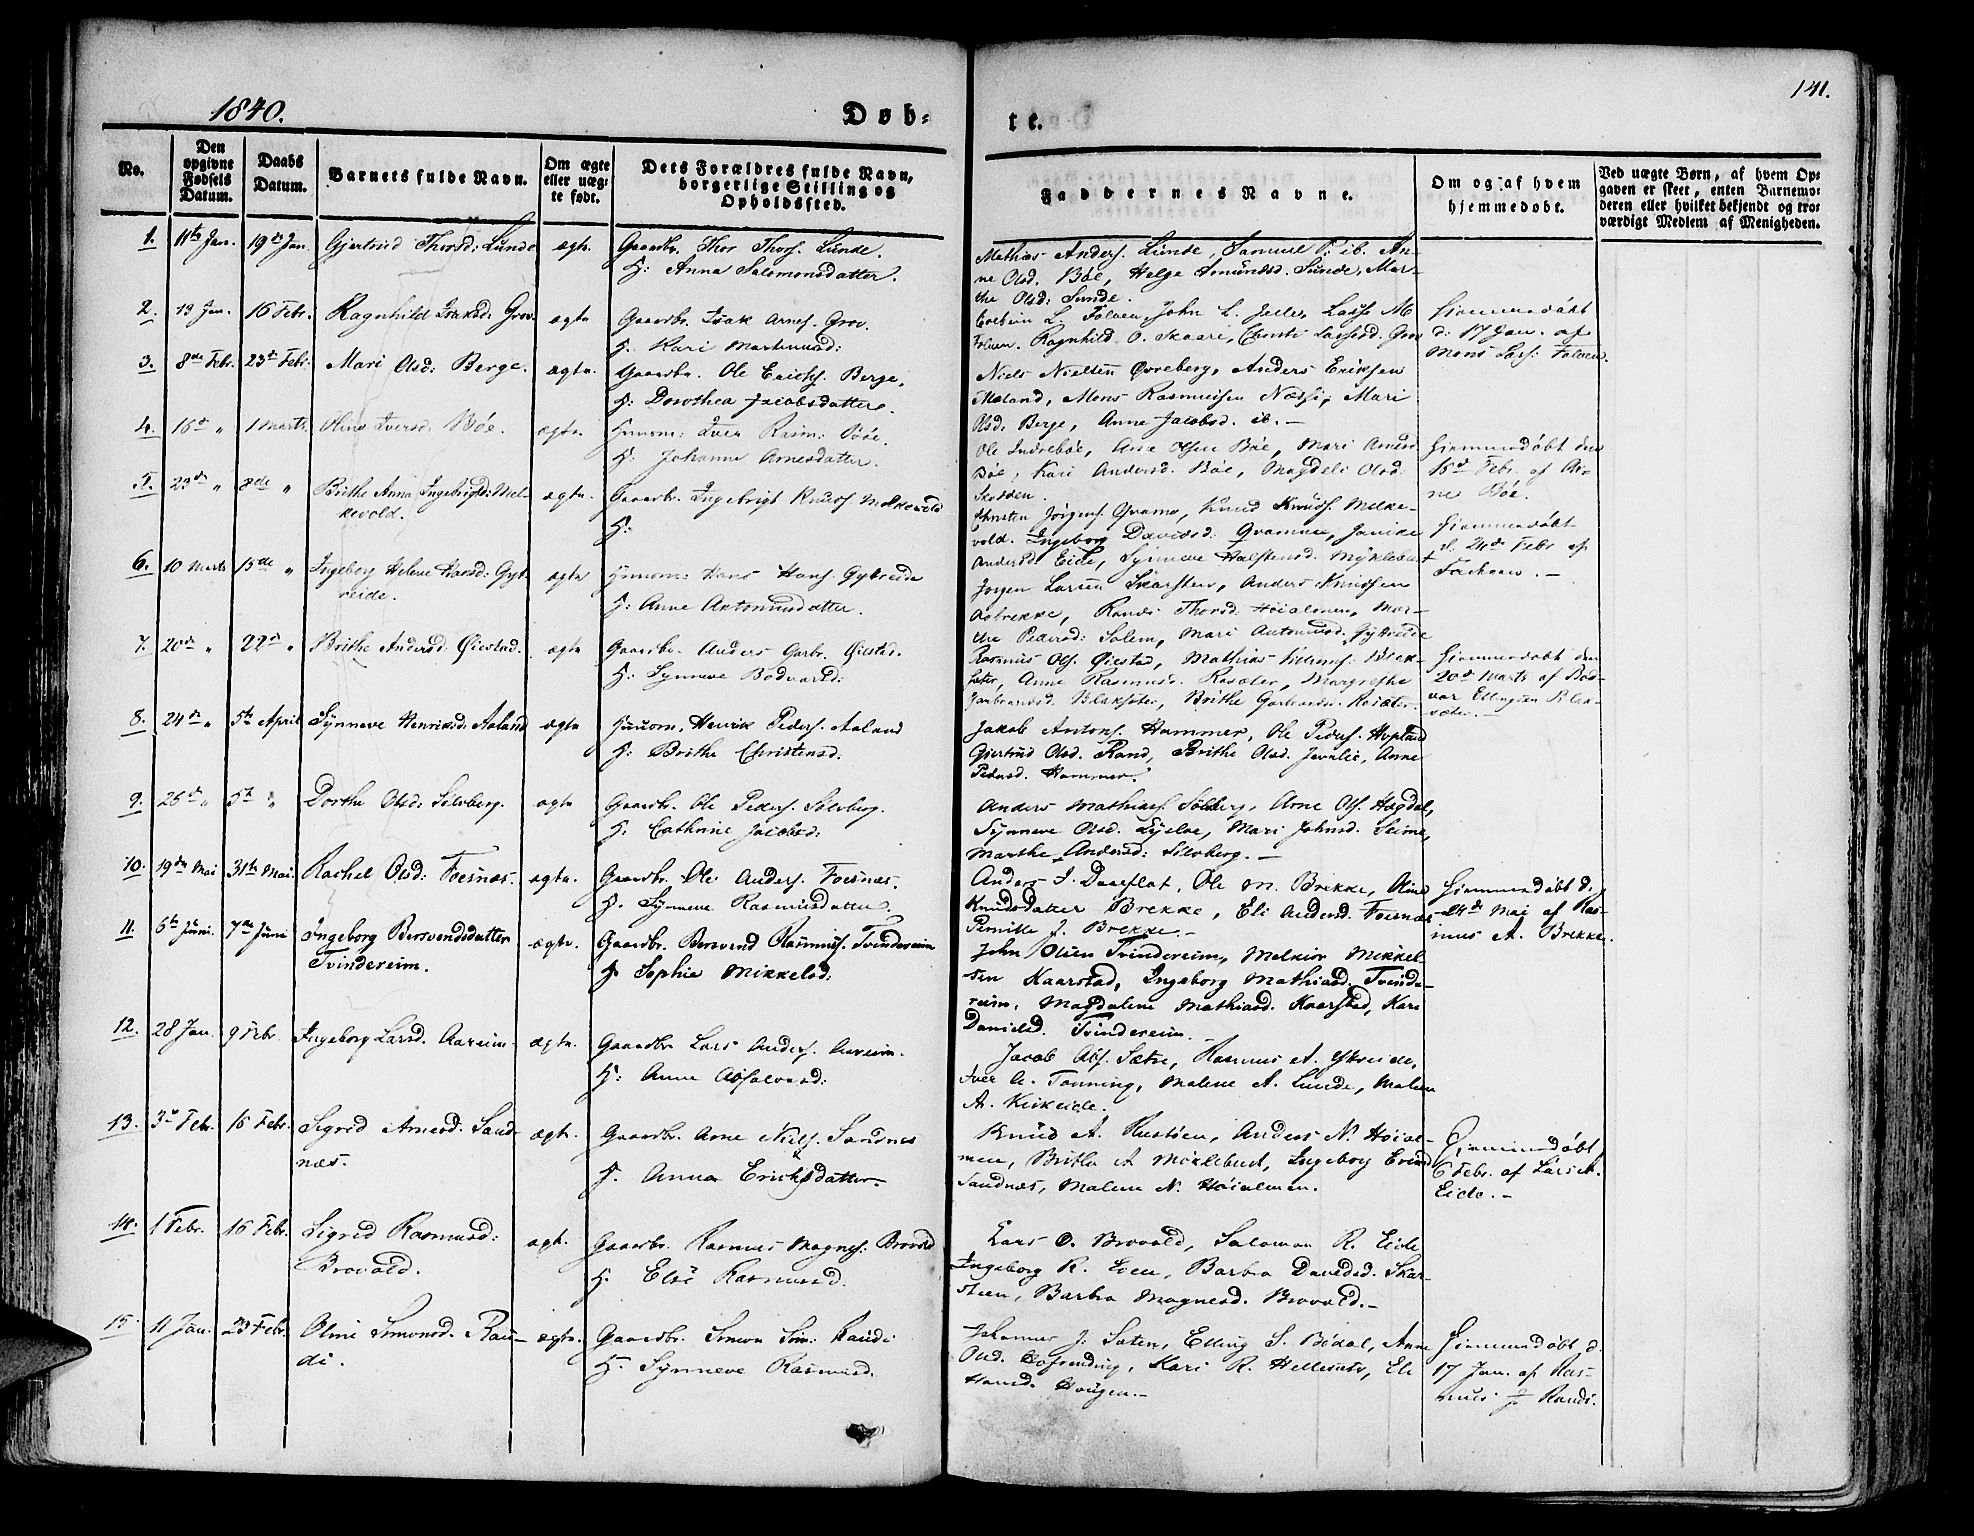 1840.
Døb-
te.
141.
No.
Den
opgivne
Fødsels
Datum.
Daabs
Datum.
Barnets fulde Navn.
Om ægte
eller uæg-
te født.
Dets Forældres fulde Navn,
borgerlige Stilling og
Opholdssted.
Faddernes Navne.
Om og af hvem
hjemmedøbt.
Ved uægte Børn, af hvem Op-
gaven er skeet, enten Barnemo-
deren eller hvilket bekjendt og tro-
værdigt Medlem af Menigheden.
1. 11te Jan. 19de Jan. Gjertrud Thorsd: Lunde ægte. Gaardbr. Thor Thors. Lunde.
H: Anna Salomonsdatter.
Mathias Anders. Lunde, Samuel P. ib. An-
ne Olsd. Bøe, Helge Amundsd. Lunde, Mar-
the Olsd: Lunde.
2. 13 Jan. 16 Febr. Ragnhild Isaksd: Grov. ægte Gaardbr. Isak Arnes. Grov.
H. Kari Martinusd:
L. Folven, John L. Lasse M
Folven. Ragnhild O. Skaare, Lassesd. Grov
Hjemmedøbt
d. 17 Jan. af
Mons Lars: Folven.
3. 8de Febr. 23de Febr. Mari Olsd: Berge. ægte. Gaardbr. Ole Erichs. Berge.
H: Dorothea Jacobsdatter.
Niels Nielsen Øvreberg, Anders Eriksen
Moland, Mons Rasmussen Næss, Mari
Olsd. Berge, Anne Jacobsd. ib. -
4. 16de " 1 Marts Oline Iversd: Bøe. ægte Huusm: Iver Rasm: Bøe.
H. Johanne Arnesdatter.
Ole Indrebøe, Arne Bøe, Mari
Bøe, Kari Andersd: Bøe, Magdeli Olsd.
Hjemmedøbt den
16de Febr. af Ar-
ne Bøe.
5. 23de " 8de " Brithe Anna Ingebrigtsd: Mel-
kevold.
ægte. Gaardbr. Ingebrigt Knuds. Melkevold
H:
Christen Jørgens. Qvame, Knud Knuds. Melke-
vold. Ingeborg Davidsd. Qvamme, Janike
Andersd. Eide, Synneve Halstensd. Myklebu
Hjemmedøbt
d. 24de Febr. af
6. 10 Marts 15de " Ingeborg Helene Hansd: Gyt-
reide.
ægte Huusm: Hans Hans. Gytreide
H: Anne Antomusdatter.
Jørgen Larsen Skarsten, Anders Knudsen
Thorsd. Høialmen, Mar-
the Pedersd: Solem, Mari Antomusd. Gytreide
7. 20de " 22de " Brithe Andersd. Øiestad. ægte Gaardbr. Anders Garbr. Øiestad.
H: Synneve Bodvarsd:
Rasmus Ols. Øiestad, Mathias
Anne Rasmusd. Margrethe
Blaksæter, Brithe
Hjemmedøbt den
20de Marts af Bod-
var Ellingsen Blak-
sæter. -
8. 24de " 5te April Synneve Henriksd. Aaland ægte Huusm. Henrik Peders. Aaland
H: Brithe Christensd.
Jakob Antons. Hammer, Ole Peders. Hopland
Gjertrud Olsd. Rand, Brithe Olsd. Anne
Pedersd. Hammer.
9. 26de " 5te " Dorthe Olsd: Sølvberg. ægte Gaardbr. Ole Peders. Sølvberg.
H. Cathrine Jacobsd:
Anders Mathias. Sølvberg, Arne Ols. Hogdal,
Synneve Olsd. Mari Johnsd. Seime,
Marthe Andersd: Sølvberg. -
10. 19de Mai 31te Mai Rachel Olsd: Foesnæs. ægte. Gaardbr. Ole Anders. Foesnæs.
H. Synneve Rasmusdatter.
Anders J. Ole M. Brekke, Oline
Knudsdatter Brekke, Eli Andersd. Foesnæs
Pernille J. Brekke. -
Hjemmedøbt d.
24de Mai af Ras-
mus A. Brekke.
11. 5te Juni. 7de Juni Ingeborg Bersvendsdatter
Tvindereim.
ægte. Gaardbr. Bersvend Rasmus. Tvindereim
H. Sophie Mikkelsd:
John Olsen Tvindereim, Melkior Mikkel-
sen Kaarstad, Ingeborg Mathiasd. Tvinde-
reim, Magdalene Mathiasd. Kaarstad, Kari
Danielsd. Tvindereim.
12. 28 Jan. 9 Febr. Ingeborg Larsd. Aareim. ægte. Gaardbr. Lars Anders. Aareim.
H: Anne Absalonsd:
Jacob Abs. Sætre, Rasmus A. Ytreeide,
Iver A. Tonning, Malene A. Lunde, Malene
A.
13. 3de Febr. 16 Febr. Sigrid Arnesd. Sand-
næs.
ægte. Gaardbr. Arne Niels. Sandnes
H. Anna Eriksdatter. -
Knud A. Anders N. Høial-
men, Brithe A. Mycklebust, Ingeborg
Sandnæs, Malene N. Høialmen.
Hjemmedøbt
6 Febr. af Lars A.
Eide. -
14. 1 Febr. 16 Febr. Sigrid Rasmusd:
Brovold.
ægte. Gaardbr. Rasmus Magnes: Brovold
H. Elsi Rasmusd.
Lars O. Brovold, Salomon R. Eide
Ingeborg R. Barbra Davidsd. Skar-
steen, Barbra Magnesd. Brovold. -
15. 11 Jan. 23 Febr. Oline Simonsd. Ran-
di.
ægte. Gaardbr. Simon Sim: Randi
H. Synneve Rasmusd.
Johannes J: Sæten, Elling S. Bødal, Anne
Olsd. Kari R. Hellesæter, Eli
Hansd. Hougen. -
Hjemmedøbt d.
17 Jan. af Ras-
mus J. Randi.